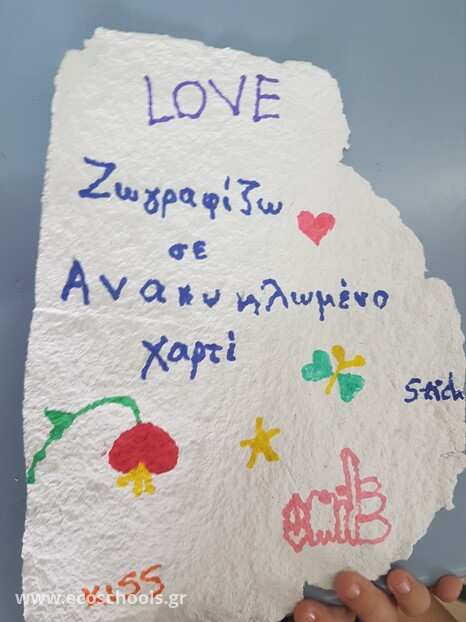 LOVE
Ζωγραφίζω
σε
Ανακυκλωμένο
χαρτί
KISS
www.ecoschools.gr